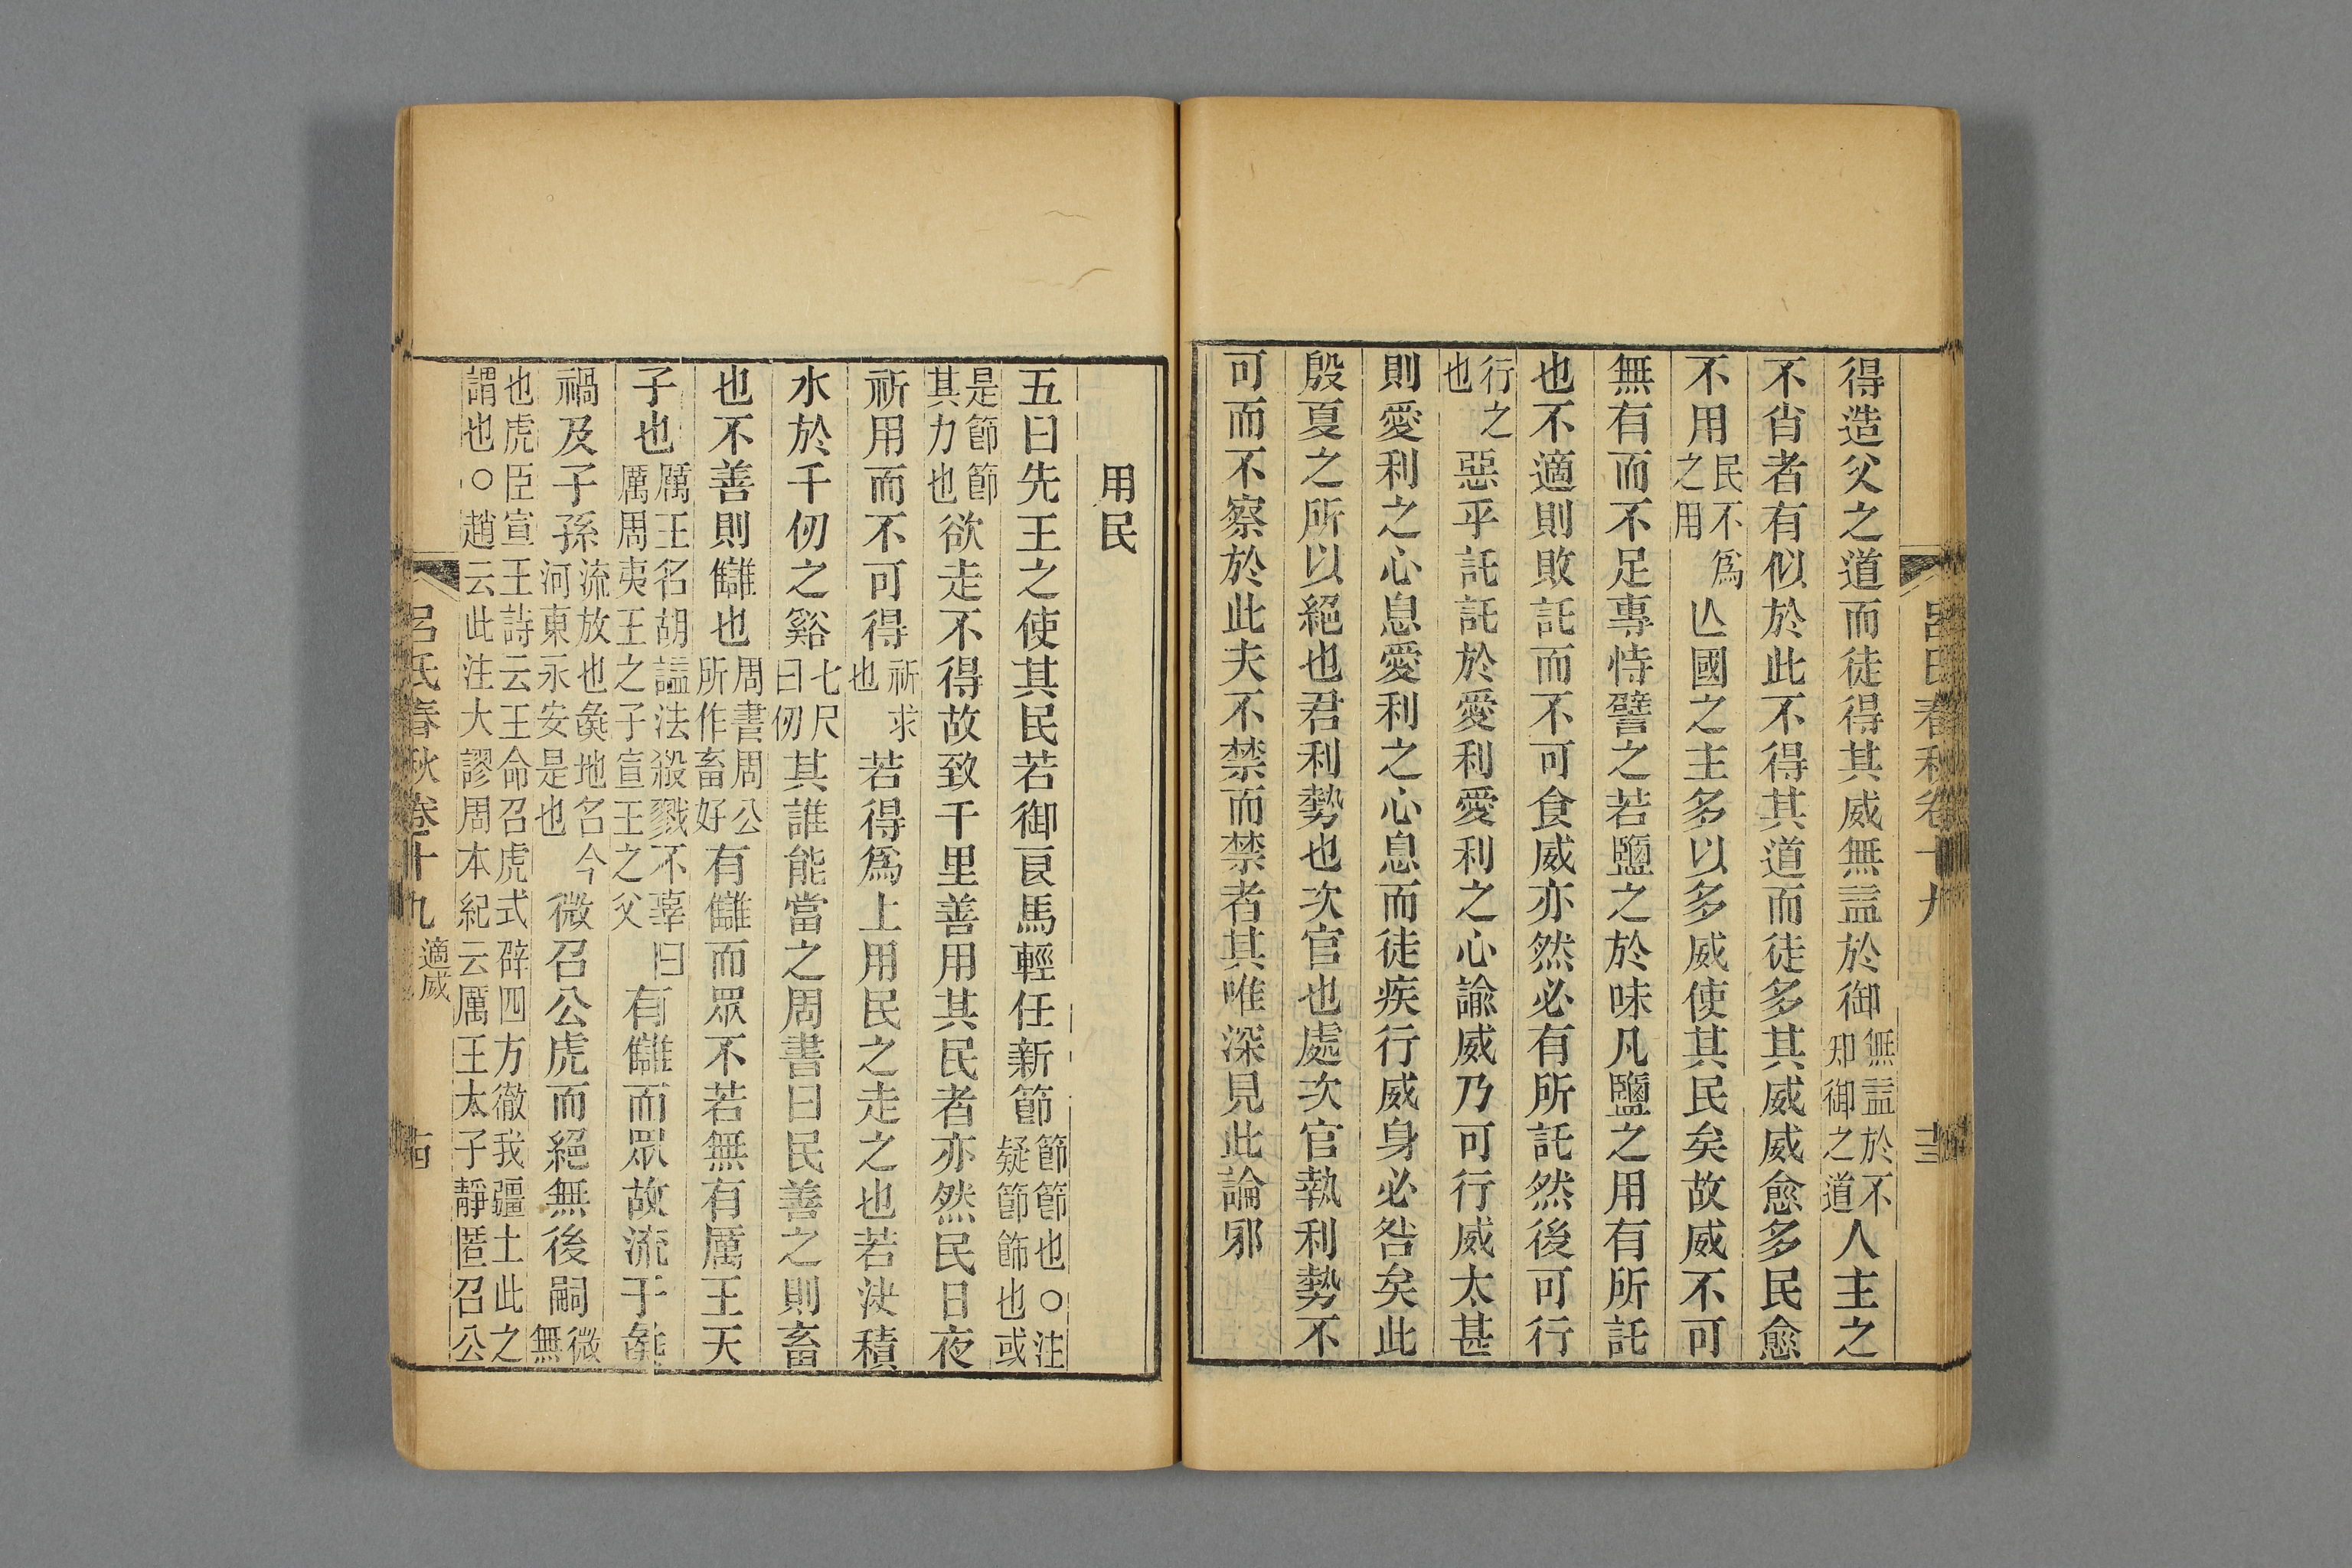 呂氏春秋卷十九
得造父之道而徒得其威無益於御無益於不知御之道人主之
不肖者有似於此不得其道而徒多其威威愈多民愈
不用民不爲之用亾國之主多以多威使其民矣故威不可
無有而不足專恃譬之若鹽之於味凡鹽之用有所託
也不適則敗託而不可食威亦然必有所託然後可行
行之也惡乎託託於愛利愛利之心諭威乃可行威太甚
則愛利之心息愛利之心息而徒疾行威身必咎矣此
殷夏之所以絕也君利勢也次官也處次官執利勢不
可而不察於此夫不禁而禁者其唯深見此論邪
用民
五曰先王之使其民若御良馬輕任新節節節也○注疑節飾也或
是節節其力也欲走不得故致千里善用其民者亦然民日夜
祈用而不可得祈求也若得爲上用民之走之也若決積
水於千仞之谿七尺曰仞其誰能當之周書曰民善之則畜
也不善則讎也周書周公所作畜好有讎而眾不若無有厲王天
子也厲王名胡諡法殺戮不辜曰厲周夷王之子宣王之父有讎而眾故流于彘
禍及子孫流放也彘地名今河東永安是也微召公虎而絕無後嗣微無
也虎臣宣王詩云王命召虎式辟四方徹我疆土此之
謂也○趙云此注大謬周本紀云厲王太子靜匿召公
呂氏春秋卷十九 適威